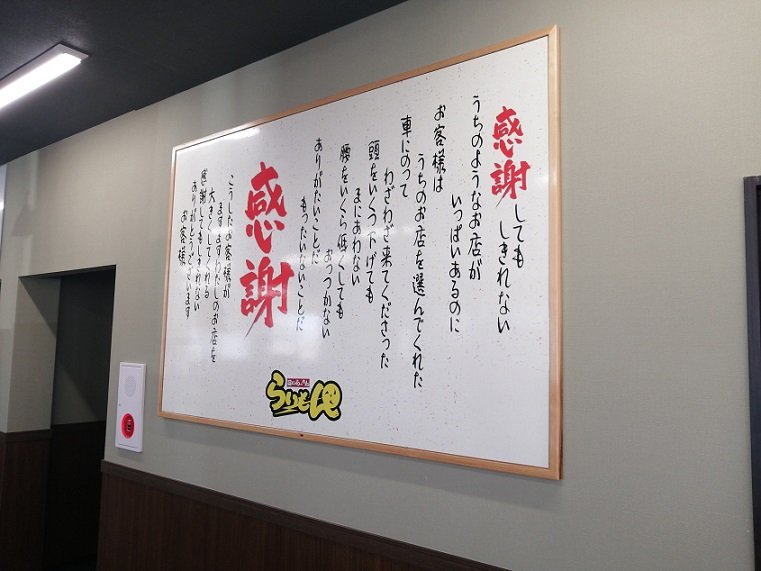 感謝しても
しきれない
うちのようなお店が
いっぱいあるのに
お客様は
うちのお店を選んでくれた
車にのって
わざわざ来てくださった
頭をいくつ下げても
まにあわない
腰をいくら低くしても
おっつかない
ありがたいことだ
もったいないことだ
感謝
こうしたお客様が
ますますわたしのお店を
大きくしてくれる
感謝してもしきれない
ありがとうございます
お客様